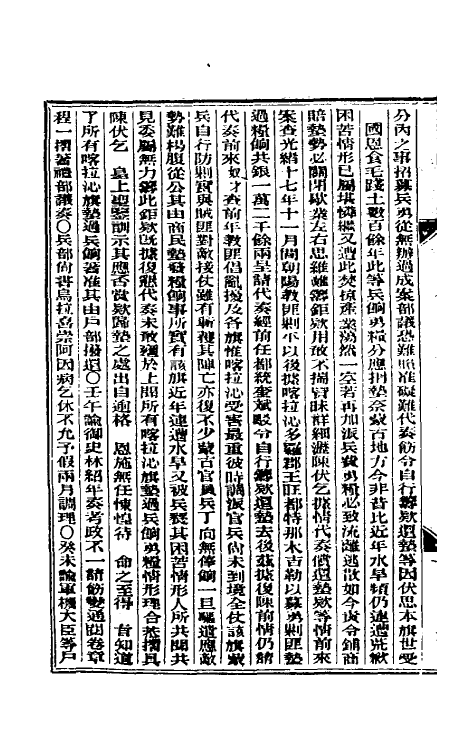 分內之事招募兵勇從無辦過成案部議恐難照准礙難代奏飭令自行籌欵還墊等因伏思本旗世受
國恩食毛踐土數百餘年此等兵餉勇糧分應捐墊奈蒙古地方今非昔比近年水旱頻仍連遭荒歉
困苦情形已屬堪憐繼又遭此焚掠產業蕩然一空若再加派兵費勇糧必致流離逃散如今責令鋪商
賠墊勢必關閉歇業左右思維難籌鉅欵用敢不揣冒昧詳細瀝陳伏乞據情代奏償還墊欵等情前來
案查光緒十七年十一月間朝陽教匪剿平以後據喀拉沁多羅郡王旺都特那木吉勒以募勇剿匪墊
過糧餉共銀一萬二千餘兩呈請代奏經前任都統奎斌駁令自行籌欵還墊去後茲據復陳前情仍請
代奏前來奴才查前年教匪倡亂擾及各旗惟喀拉沁受害最重彼時調派官兵尚未到境全仗該旗蒙
兵自行防剿實與賊匪對敵接仗雖有斬獲其陣亡亦復不少蒙古官員兵丁向無俸餉一旦驅遣應敵
勢難枵腹從公其由商民墊發糧餉事所實有該旗近年連遭水旱又被兵燹其困苦情形人所共聞共
見委屬無力籌此鉅欵旣據復懇代奏未敢壅於上聞所有喀拉沁旗墊過兵餉勇糧情形理合恭摺具
陳伏乞 皇上聖鑒訓示其應否賞欵歸墊之處出自逾格 恩施無任悚惶待 命之至得 旨知道
了所有喀拉沁旗墊過兵餉著准其由戶部撥還○壬午諭御史林紹年奏考政不一請飭變通閱卷章
程一摺著禮部議奏○兵部尚書烏拉喜崇阿因病乞休不允予假兩月調理○癸未諭軍機大臣等戶